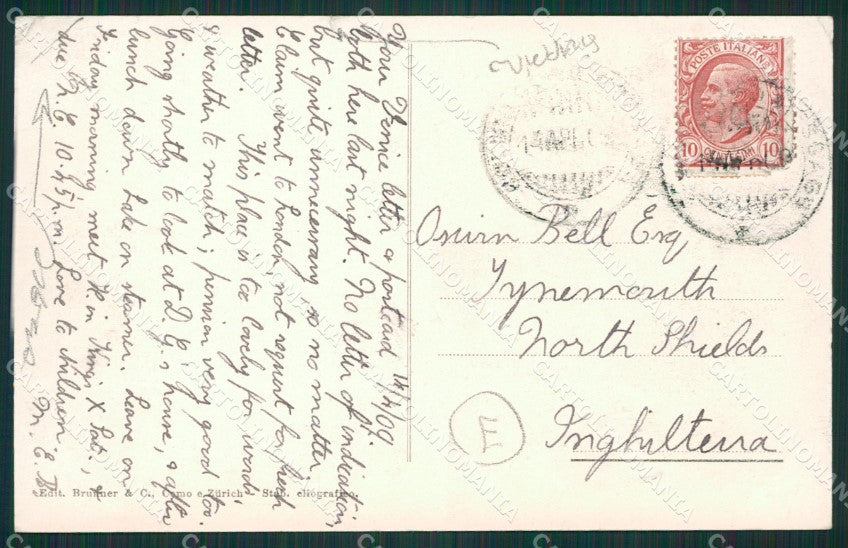 14/4/09.
Your Venice letter & postcard
both here last night. No letter of indication
but quite unnecessary so no matter.
Claim went to London, not request for fresh
letter. This place is too lovely for words
& weather to match; pension very good too.
Going shortly to look at D. G.s house, & after
lunch down Lake on steamer. Leave on
Friday morning meet H. in Kings X Sat., &
due N. E. 10.45 p.m. Love to children.
M. E. B.
Edit. Brunner & C., Como e Zürich - Stab. eliografico.
POSTE ITALIANE
10 CENTESIMI 10
Oswin Bell Esq
Tynemouth
North Shields
Inghilterra
CARTOLINOMANIA